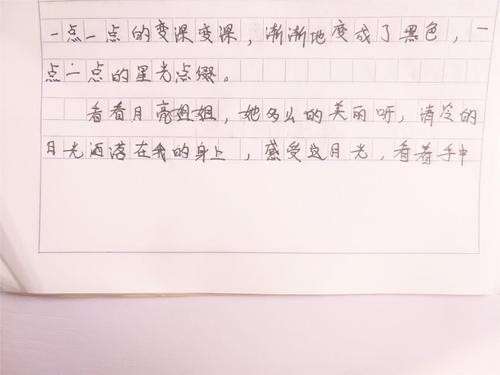 一点一点的变深变深，渐渐地变成了黑色，一
点一点的星光点缀。
看看月亮姐姐，她多么的美丽呀，清冷的
月光洒落在我的身上，感受这月光，看着手中